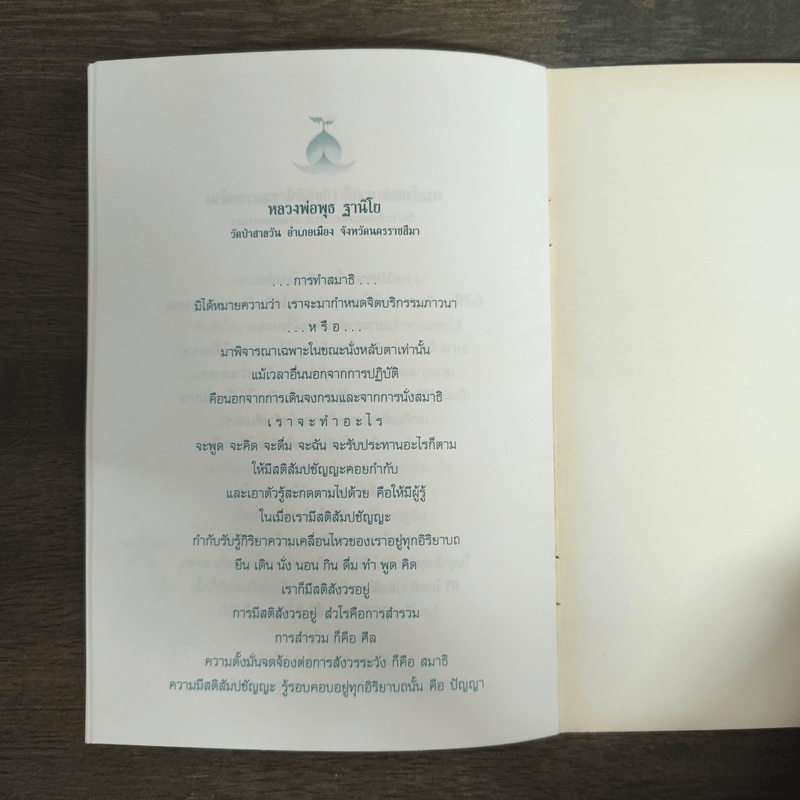 หลวงพ่อพุธ ฐานิโย
วัดป่าสาลวัน อำเภอเมือง จังหวัดนครราชสีมา
. . . การทำสมาธิ . . .
มิได้หมายความว่า เราจะมากำหนดจิตบริกรรมภาวนา
. . . ห รื อ . . .
มาพิจารณาเฉพาะในขณะนั่งหลับตาเท่านั้น
แม้เวลาอื่นนอกจากการปฏิบัติ
คือนอกจากการเดินจงกรมและจากการนั่งสมาธิ
เ ร า จ ะ ทำ อ ะ ไ ร
จะพูด จะคิด จะดื่ม จะฉัน จะรับประทานอะไรก็ตาม
ให้มีสติสัมปชัญญะคอยกำกับ
และเอาตัวรู้สะกดตามไปด้วย คือให้มีผู้รู้
ในเมื่อเรามีสติสัมปชัญญะ
กำกับรับรู้กิริยาความเคลื่อนไหวของเราอยู่ทุกอิริยาบถ
ยืน เดิน นั่ง นอน กิน ดื่ม ทำ พูด คิด
เราก็มีสติสังวรอยู่
การมีสติสังวรอยู่ สังวรคือการสำรวม
การสำรวม ก็คือ ศีล
ความตั้งมั่นจดจ้องต่อการสังวรระวัง ก็คือ สมาธิ
ความมีสติสัมปชัญญะ รู้รอบคอบอยู่ทุกอิริยาบถนั้น คือ ปัญญา